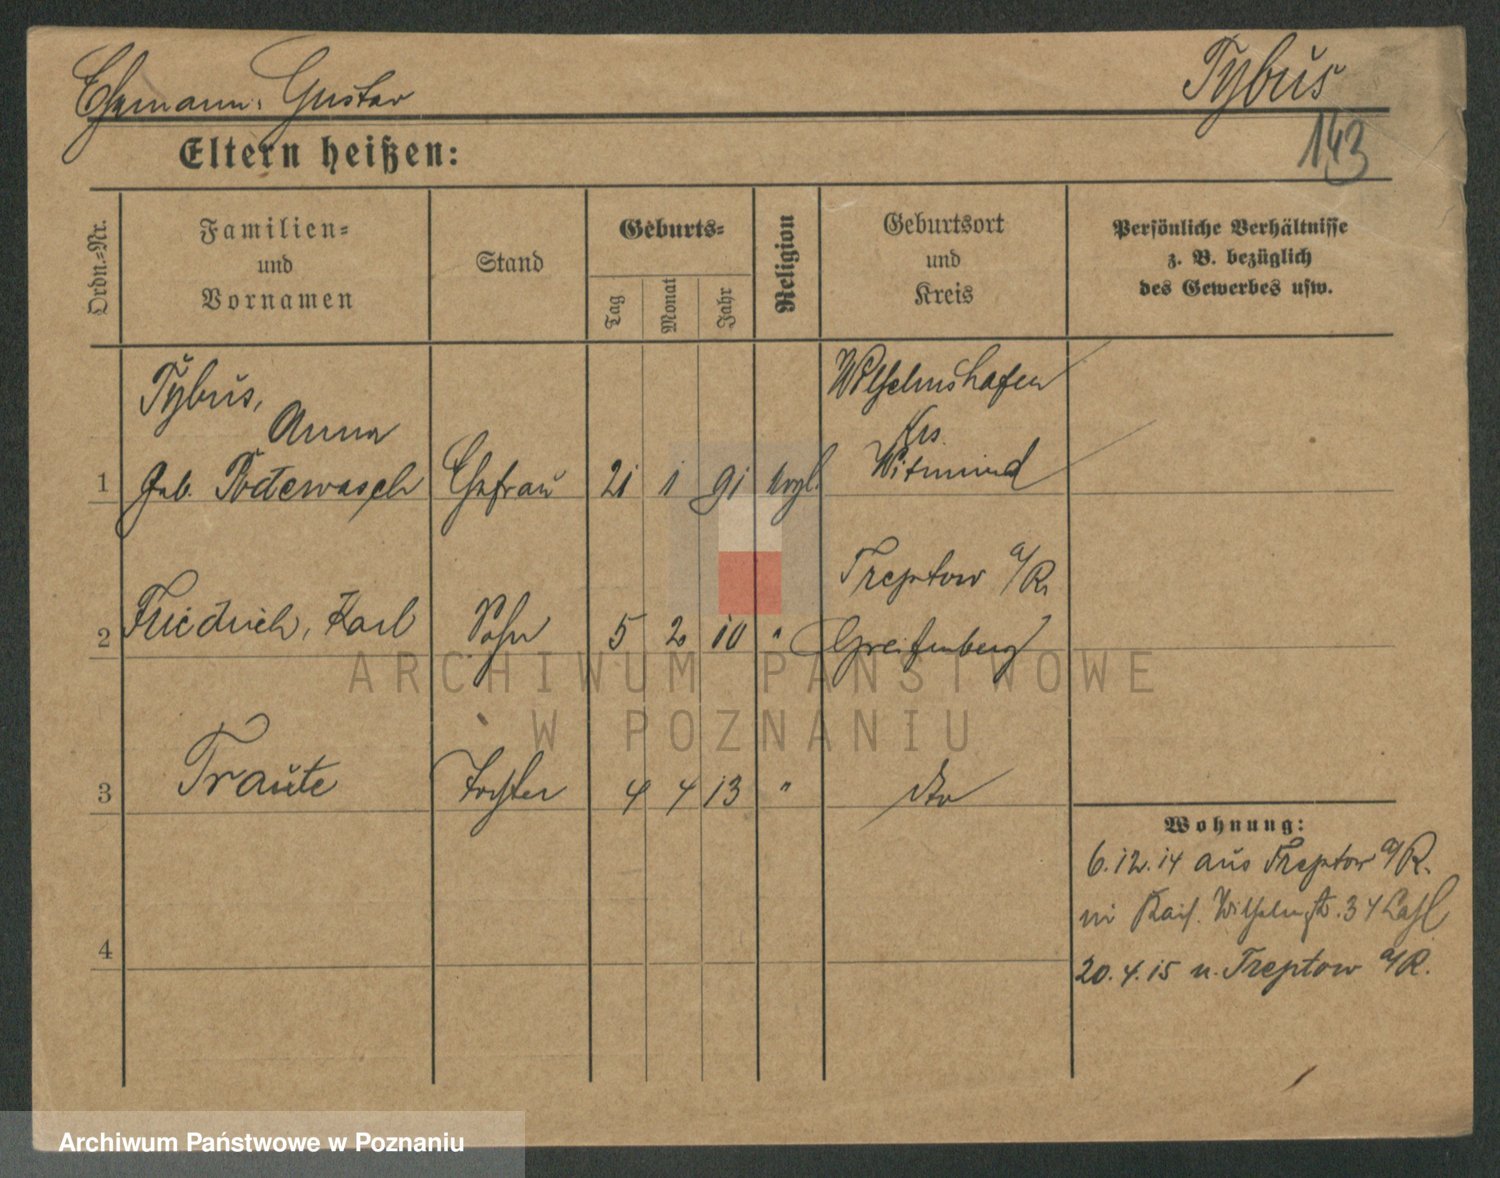 Ehemann: Gustav
Tybus
143
Eltern heißen:
Ordn.-Nr.
Familien-
und
Vornamen
Stand
Geburts-
Tag
Monat
Jahr
Religion
Geburtsort
und
Kreis
Persönliche Verhältnisse
z. B. bezüglich
des Gewerbes usw.
Tybus,
Anna
1 geb. Podewasch Ehefrau 21 1 91 evgl.
Wilhelmshafen
Krs.
Witmund
2 Friedrich, Karl Sohn 5 2 10 "
Treptow a/R.
Greifenberg
3 Traute Tochter 4 4 13 " dto
4
Wohnung:
6.12.14 aus Treptow a/R.
Kais. Wilhelmstr. 34
20.4.15 n. Treptow a/R.
ARCHIWUM PAŃSTWOWE
W POZNANIU
Archiwum Państwowe w Poznaniu